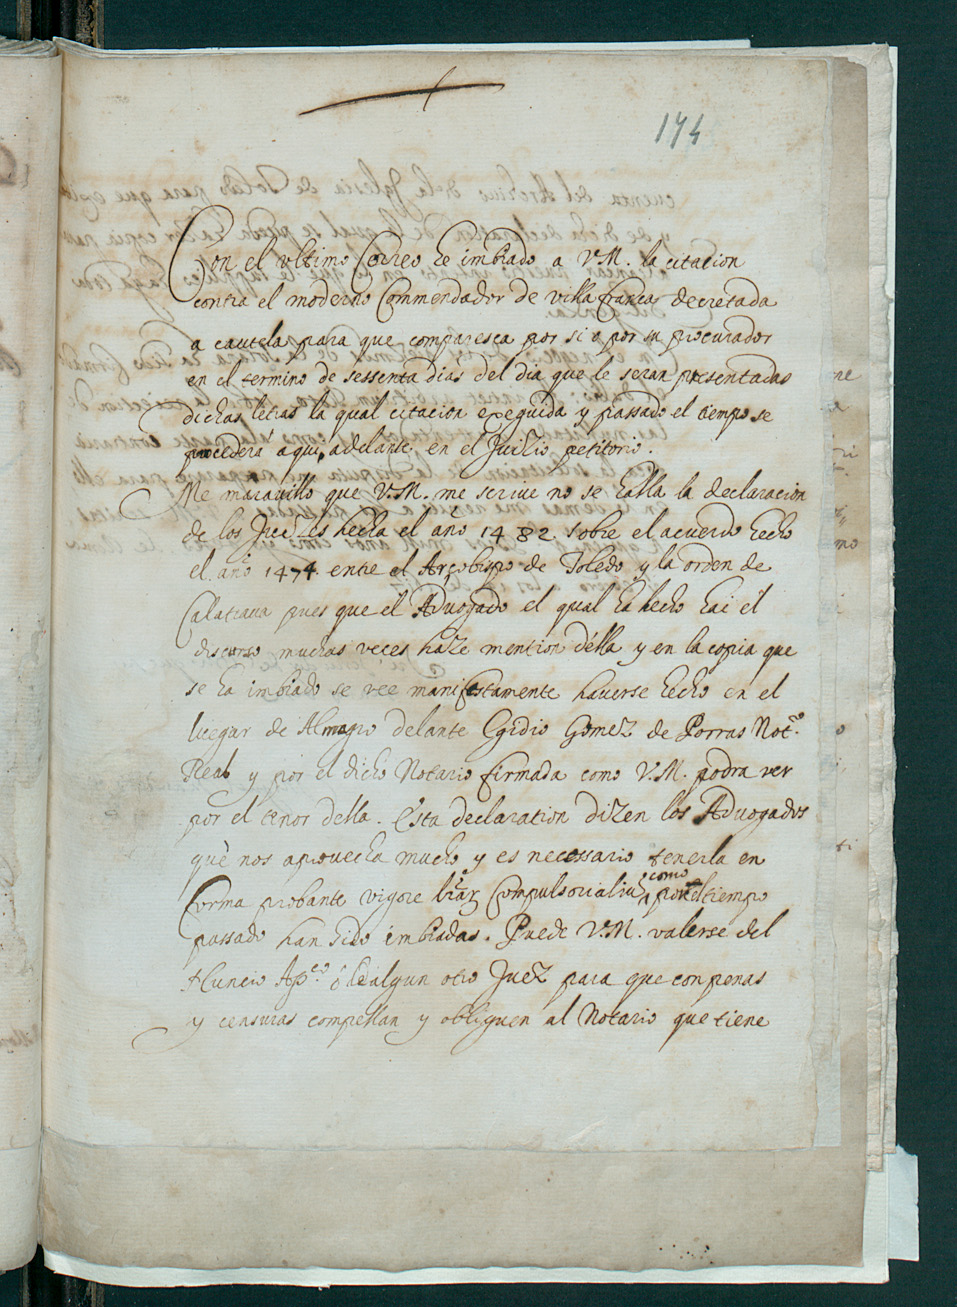 174
Con el ultimo Correo he imbiado a V.M. la citacion
contra el moderno Commendador de villa franca decretada
a cautela para que comparesca por si o por su procurador
en el termino de sessenta dias del dia que le seran presentadas
dichas letras la qual citacion exeguida y passado el tiempo se
procederà aqui adelante en el Juicio petitorio.
Me maravillo que V.M. me scrive no se halla la declaracion
de los Juezes hecha el año 1482 sobre el acuerdo hecho
el año 1474 entre el Arçobispo de Toledo y la orden de
Calatrava pues que el Advogado el qual ha hecho hai el
discurso muchas veces haze mention della y en la copia que
se ha imbiado se vee manifestamente haverse hecho en el
luegar de Almagro delante Egidio Gomez de Porras Not.º
Real y por el dicho Notario firmada como V.M. podra ver
por el tenor della. Esta declaration dizen los Advogados
què nos aprovecha mucho y es necessario tenerla en
forma probante vigore lrãr Compulsorialiũ como por el tiempo
passado han sido imbiadas. Puede V.M. valerse del
Nuncio Ap.co ò de algun otro Juez para que con penas
y censuras compellan y obliguen al Notario que tiene